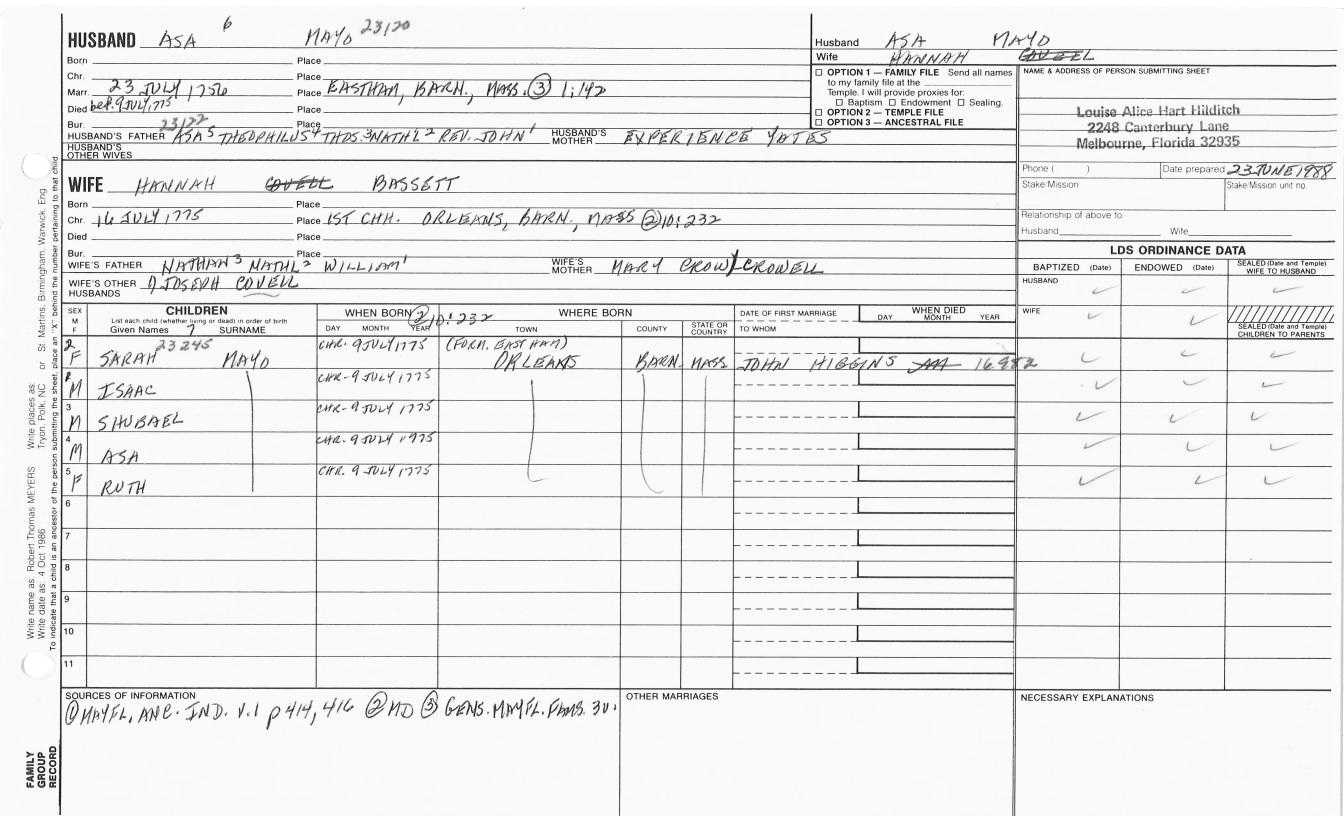 HUSBAND ASA 6 MAYO 23120
Born Place
Chr. Place
Marr. 23 JULY 1756 Place EASTHAM, BARN., MASS. ③ 1:142
Died bef. 9 JULY, 1775 Place
Bur. 23122 Place
HUSBAND'S FATHER ASA 5 THEOPHILUS 4 THOS. 3 NATHL 2 REV. JOHN 1 HUSBAND'S MOTHER EXPERIENCE YATES
HUSBAND'S OTHER WIVES
WIFE HANNAH COVELL BASSETT
Born Place
Chr. 16 JULY 1775 Place 1ST CHH. ORLEANS, BARN., MASS ② 10:232
Died Place
Bur. Place
WIFE'S FATHER NATHAN 3 NATHL 2 WILLIAM 1 WIFE'S MOTHER MARY CROW/CROWELL
WIFE'S OTHER HUSBANDS 1) JOSEPH COVELL
Husband ASA MAYO
Wife HANNAH COVELL
☐ OPTION 1 — FAMILY FILE Send all names
to my family file at the
Temple. I will provide proxies for:
☐ Baptism ☐ Endowment ☐ Sealing.
☐ OPTION 2 — TEMPLE FILE
☐ OPTION 3 — ANCESTRAL FILE
NAME & ADDRESS OF PERSON SUBMITTING SHEET
Louise Alice Hart Hilditch
2248 Canterbury Lane
Melbourne, Florida 32935
Phone ( ) Date prepared 23 JUNE 1988
Stake Mission Stake Mission unit no.
Relationship of above to:
Husband Wife
LDS ORDINANCE DATA
BAPTIZED (Date) ENDOWED (Date) SEALED (Date and Temple) WIFE TO HUSBAND
HUSBAND ✓ ✓ ✓
WIFE ✓ ✓
SEALED (Date and Temple) CHILDREN TO PARENTS
SEX M F CHILDREN WHEN BORN ② 10:232 WHERE BORN DATE OF FIRST MARRIAGE WHEN DIED
List each child (whether living or dead) in order of birth
Given Names 7 SURNAME DAY MONTH YEAR TOWN COUNTY STATE OR COUNTRY TO WHOM DAY MONTH YEAR
23245 CHR. 9 JULY 1775 (FORM. EASTHAM)
F SARAH MAYO ORLEANS BARN. MASS JOHN HIGGINS 16,982 ✓ ✓ ✓
M ISAAC CHR- 9 JULY 1775 ✓ ✓ ✓
3 M SHUBAEL CHR- 9 JULY 1775 ✓ ✓ ✓
4 M ASA CHR. 9 JULY 1775 ✓ ✓ ✓
5 F RUTH CHR. 9 JULY 1775 ✓ ✓ ✓
6
7
8
9
10
11
SOURCES OF INFORMATION
① MAYFL, ANC. IND. V.1 p 414, 416 ② MD ③ GENS. MAYFL. FAMS. 3V.
OTHER MARRIAGES
NECESSARY EXPLANATIONS
Write name as: Robert Thomas MEYERS Write places as: Tryon, Polk, NC or St. Martins, Birmingham, Warwick, Eng
Write date as: 4 Oct 1986
To indicate that a child is an ancestor of the person submitting the sheet, place an "X" behind the number pertaining to that child
FAMILY
GROUP
RECORD